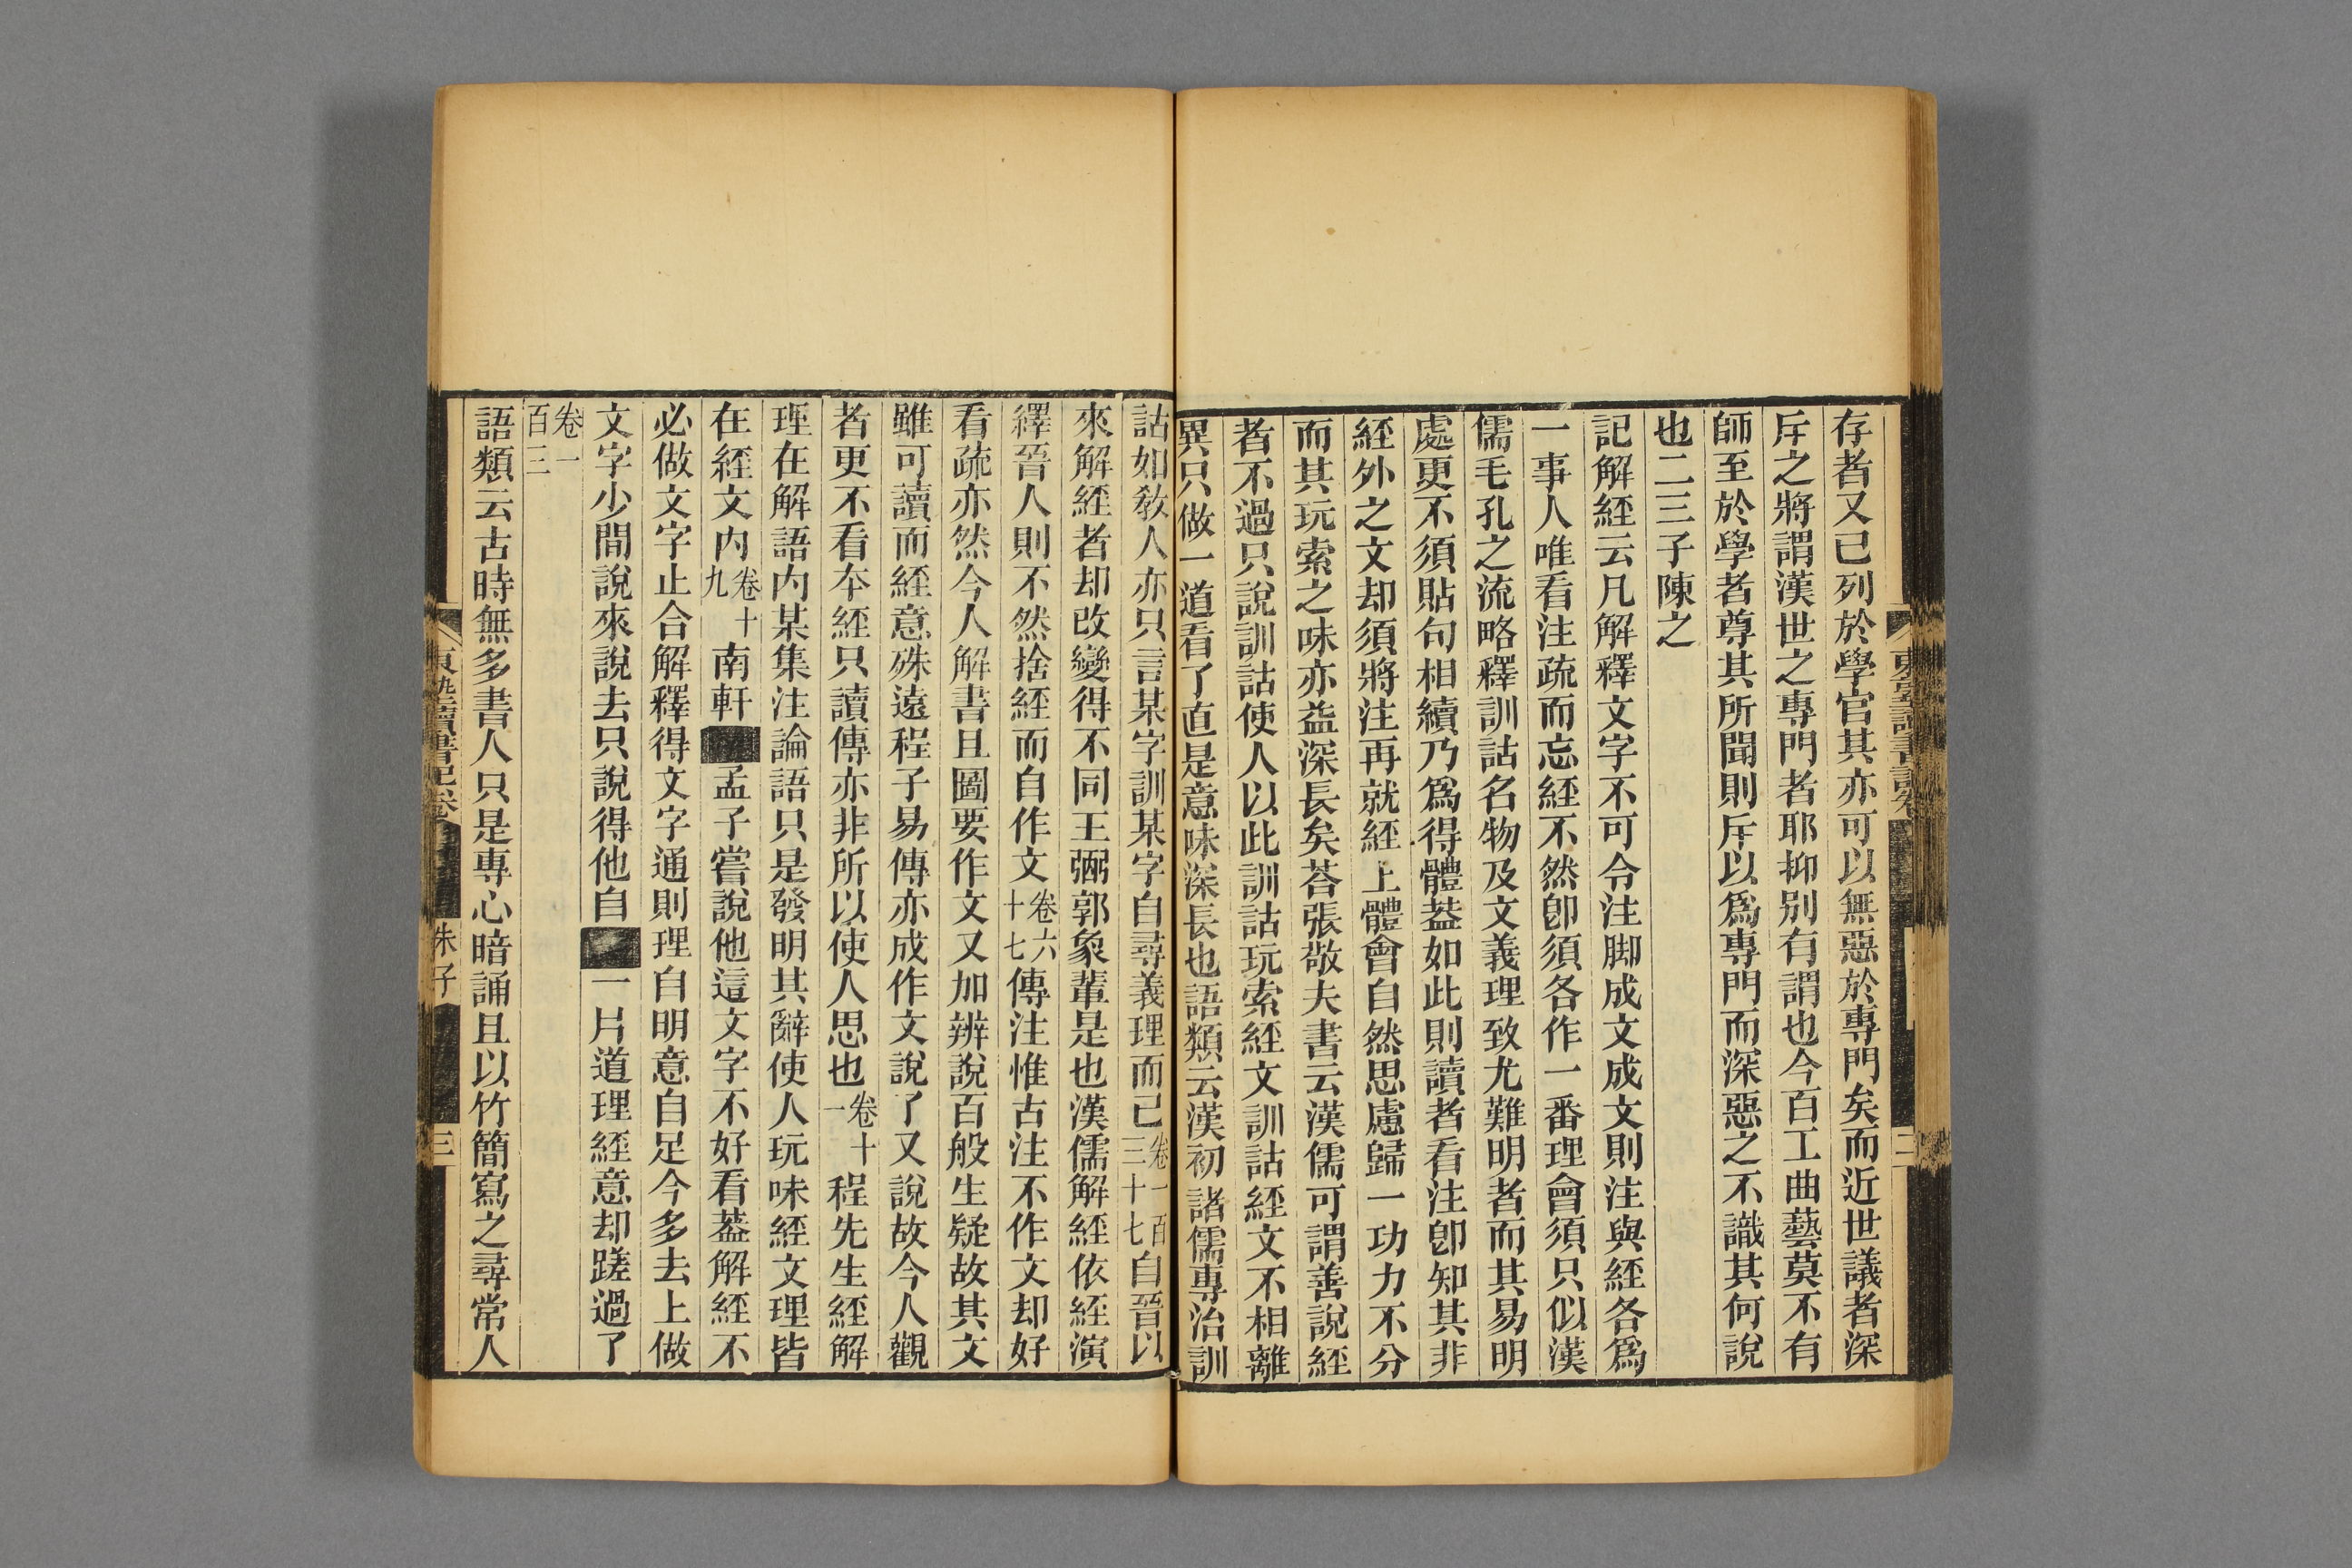 存者又已列於學官其亦可以無惡於專門矣而近世議者深
斥之將謂漢世之專門者耶抑別有謂也今百工曲藝莫不有
師至於學者尊其所聞則斥以爲專門而深惡之不識其何說
也二三子陳之
記解經云凡解釋文字不可令注脚成文成文則注與經各爲
一事人唯看注疏而忘經不然卽須各作一番理會須只似漢
儒毛孔之流略釋訓詁名物及文義理致尤難明者而其易明
處更不須貼句相續乃爲得體葢如此則讀者看注卽知其非
經外之文却須將注再就經上體會自然思慮歸一功力不分
而其玩索之味亦益深長矣荅張敬夫書云漢儒可謂善說經
者不過只說訓詁使人以此訓詁玩索經文訓詁經文不相離
異只做一道看了直是意味深長也語類云漢初諸儒專治訓
詁如敎人亦只言某字訓某字自尋義理而已卷一百三十七自晉以
來解經者却改變得不同王弼郭象輩是也漢儒解經依經演
繹晉人則不然捨經而自作文卷六十七傳注惟古注不作文却好
看疏亦然今人解書且圖要作文又加辨說百般生疑故其文
雖可讀而經意殊遠程子易傳亦成作文說了又說故今人觀
者更不看本經只讀傳亦非所以使人思也卷十一程先生經解
理在解語內某集注論語只是發明其辭使人玩味經文理皆
在經文內卷十九南軒孟子嘗說他這文字不好看葢解經不
必做文字止合解釋得文字通則理自明意自足今多去上做
文字少間說來說去只說得他自一片道理經意却蹉過了
卷一百三
語類云古時無多書人只是專心暗誦且以竹簡寫之尋常人
東塾讀書記卷
朱子
三